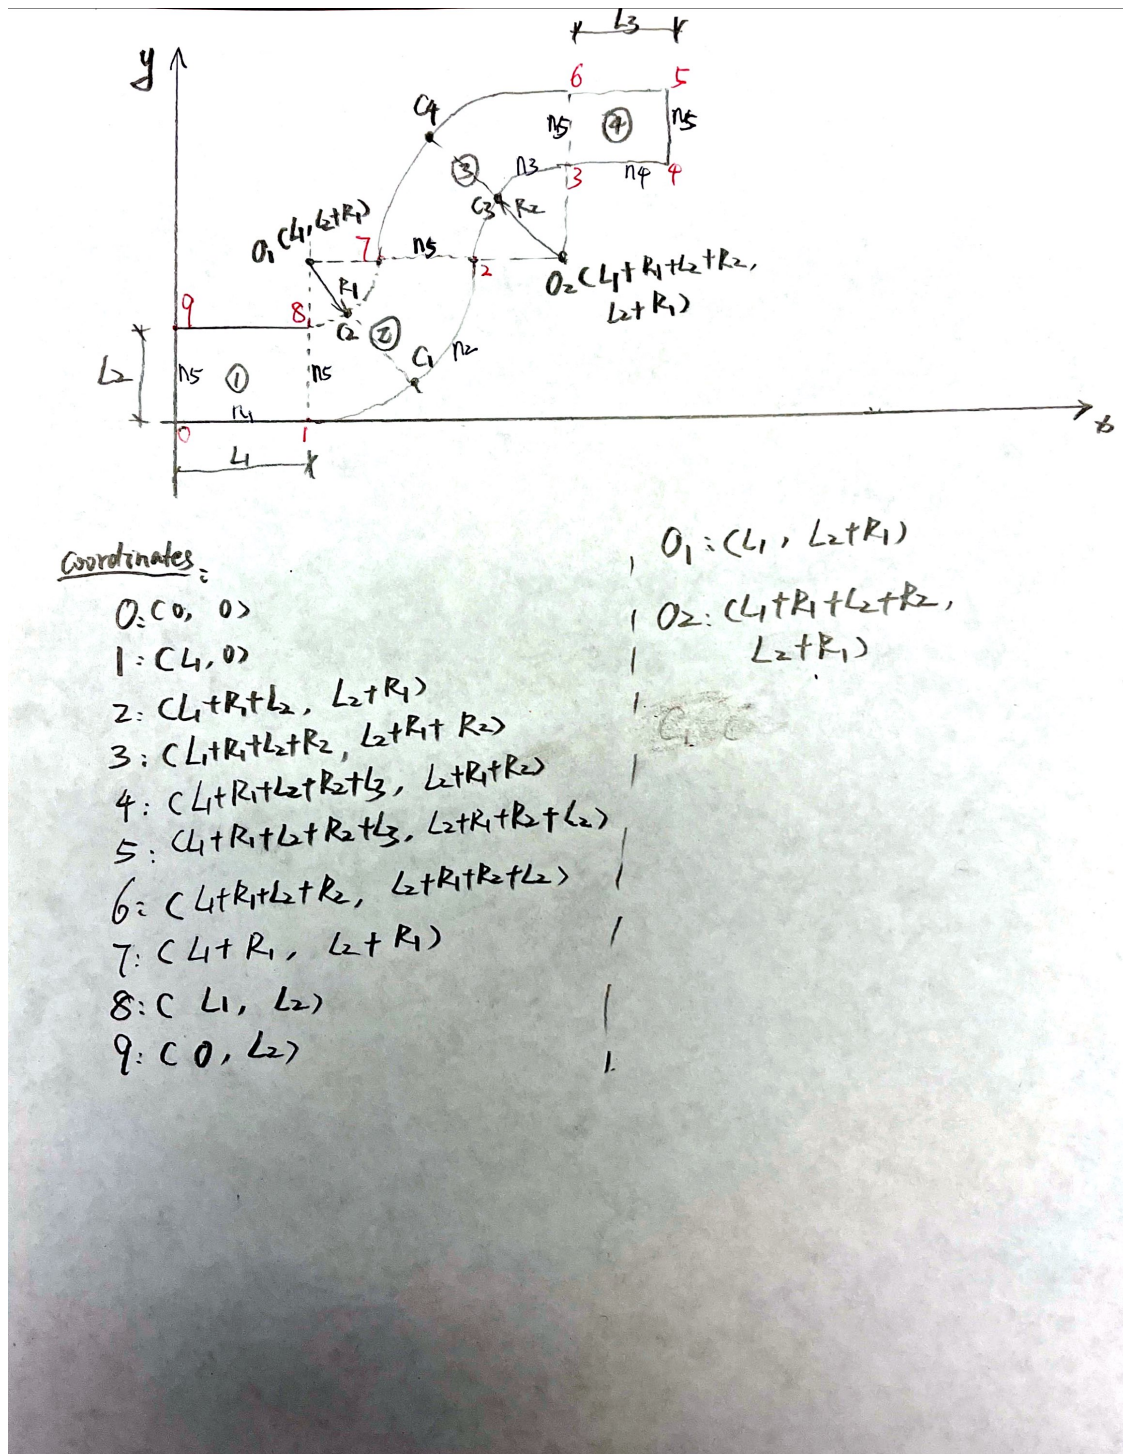 L3
y
6
5
C4
n5
4
n5
3
n3
3
n4
4
C3
R2
O1(L1, L2+R1)
7
n5
2
O2(L1+R1+L2+R2,
L2+R1)
R1
9
8
C2
2
C1
n2
L2
n5
1
n5
n1
0
1
x
L1
Coordinates:
0:(0, 0)
1:(L1, 0)
2:(L1+R1+L2, L2+R1)
3:(L1+R1+L2+R2, L2+R1+R2)
4:(L1+R1+L2+R2+L3, L2+R1+R2)
5:(L1+R1+L2+R2+L3, L2+R1+R2+L2)
6:(L1+R1+L2+R2, L2+R1+R2+L2)
7:(L1+R1, L2+R1)
8:(L1, L2)
9:(0, L2)
O1:(L1, L2+R1)
O2:(L1+R1+L2+R2,
L2+R1)